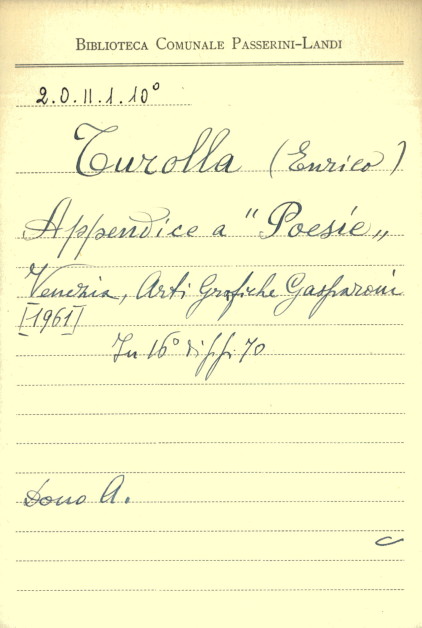 BIBLIOTECA COMUNALE PASSERINI-LANDI
2.O.II.1.10°
Turolla (Enrico)
Appendice a "Poesie„
Venezia, Arti Grafiche Gasparoni
[1961]
In 16° di pp. 70
Dono A.